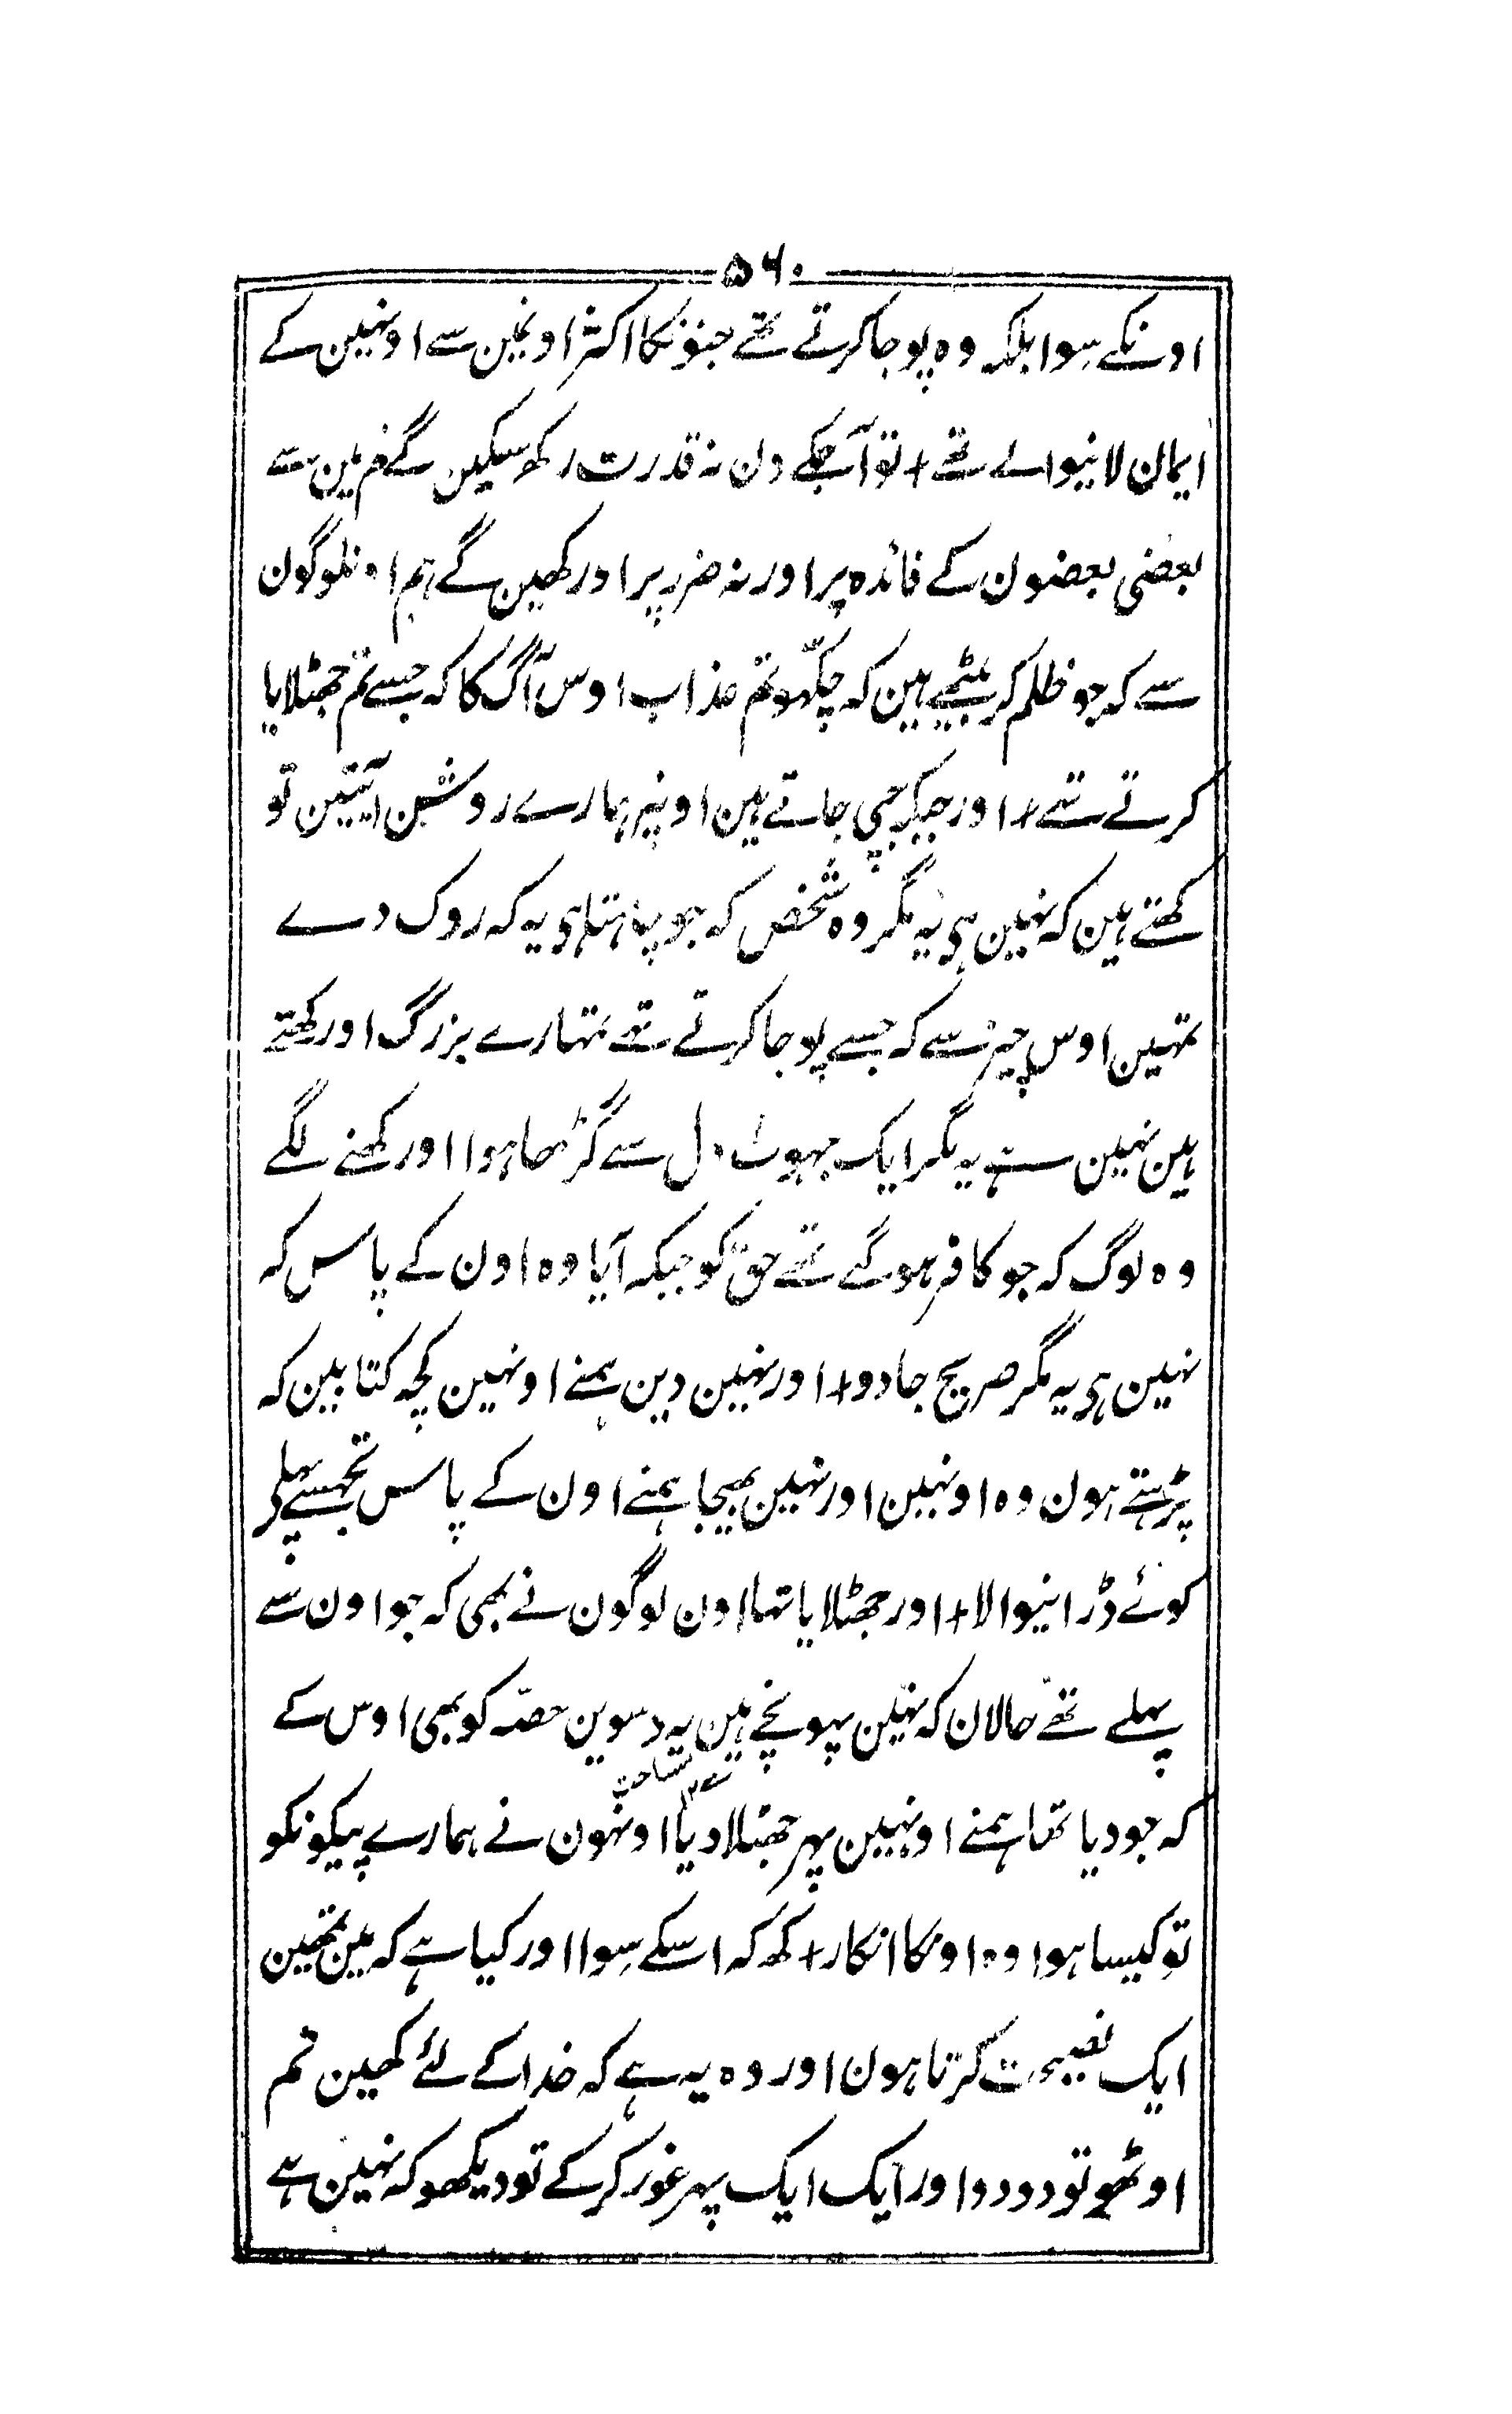 ۵۶۰
اونکے سوا بلکہ وہ پوجا کرتے تھے جنونکا اکثر اونمین سے اونہین کے
ایمان لانیوالے تھے + تو آجکے دن نہ قدرت رکھ سکین گے تمین سے
بعضی بعضون کے فائدہ پر اور نہ ضرر پر اور کھین گے ہم اونلوگون
سے کہ جو ظلم کر بیٹھے ہین کہ چکھو تم عذاب اوس آگ کا کہ جسے تم جھٹلایا
کرتے تھے + اور جبکہ جپی جاتے ہین اونپر ہمارے روشن آیتین تو
کھتے ہین کہ نہین ہی یہ مگر وہ شخص کہ جو چاہتا ہی یہ کہ روک دے
تمہین اوس چیز سے کہ جسے پوجا کرتے تھے تمہارے بزرگ اور کھتے
ہین نہین ہے یہ مگر ایک جہوٹ دل سے گڑھا ہوا اور کھنے لگے
وہ لوگ کہ جو کافر ہوگے تھے حق کو جبکہ آیا وہ اون کے پاس کہ
نہین ہی یہ مگر صریح جادو + اور نہین دین ہمنے اونہین کچھ کتابین کہ
پڑہتے ہون وہ اونہین اور نہین بھیجا ہمنے اون کے پاس تجھسے پہلے
کوئے ڈرانیوالا + اور جھٹلایا تہا اون لوگون نے بھی کہ جو اون سے
پہلے تھے حالان کہ نہین پہونچے ہین یہ دسوین حصّہ کو بھی اوس کے
کہ جو دیا تھا ہمنے اونہین پہر جھٹلا دیا اونہون نے ہمارے پیکونکو
تو کیسا ہوا وہ اونکا انکار + کھ کہ اسکے سوا اور کیا ہے کہ مین تمھین
ایک نصیحت کرتا ہون اور وہ یہ ہے کہ خدا کے لئے کھین تم
اوٹھو تو دو دو اور ایک ایک پہر غور کر کے تو دیکھو کہ نہین ہے